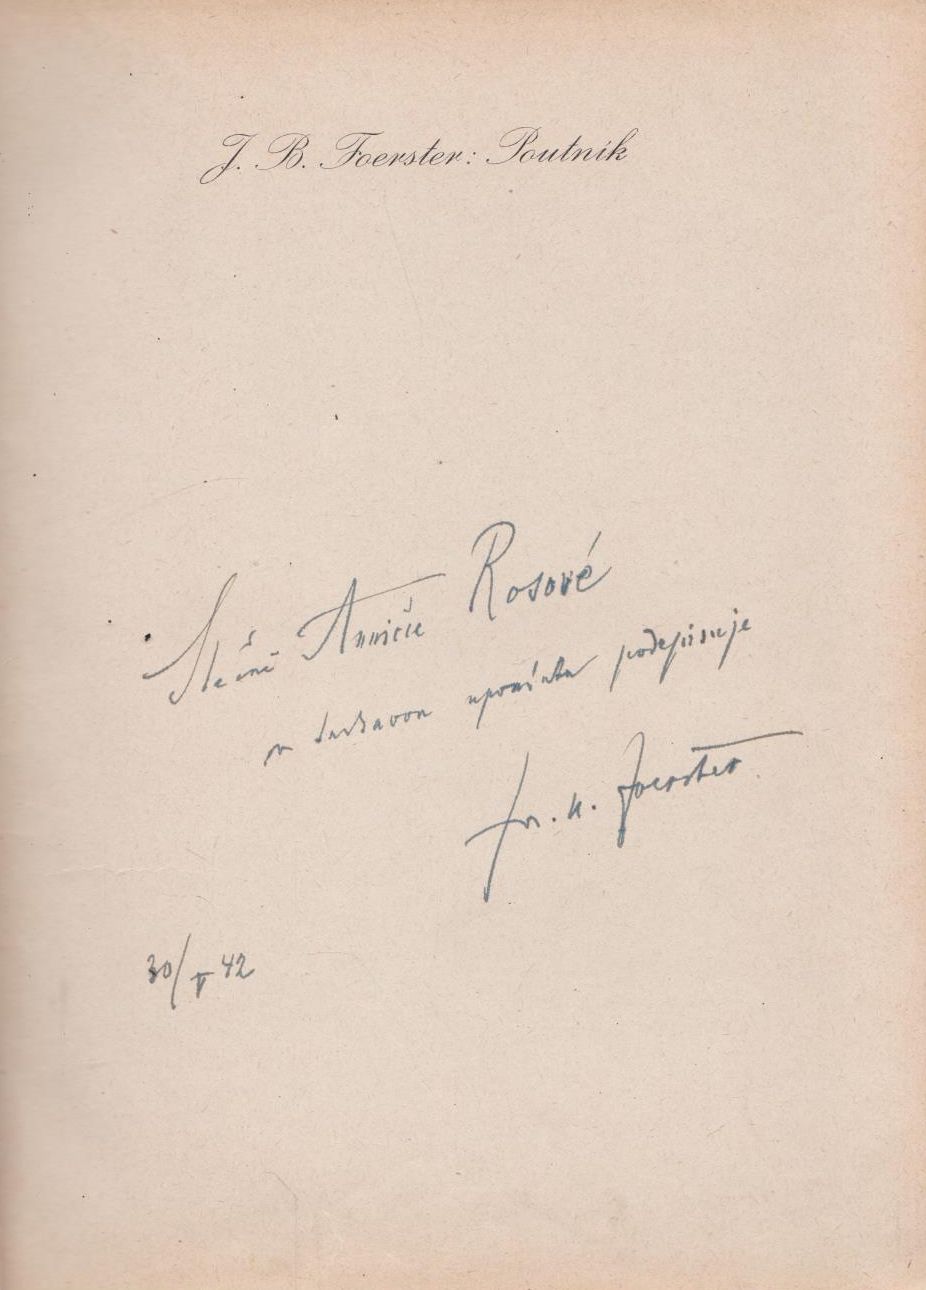 J. B. Foerster: Poutník
Slečně Anničce Rosové
v laskavou upomínku podepisuje
Jos. B. Foerster
30/V 42